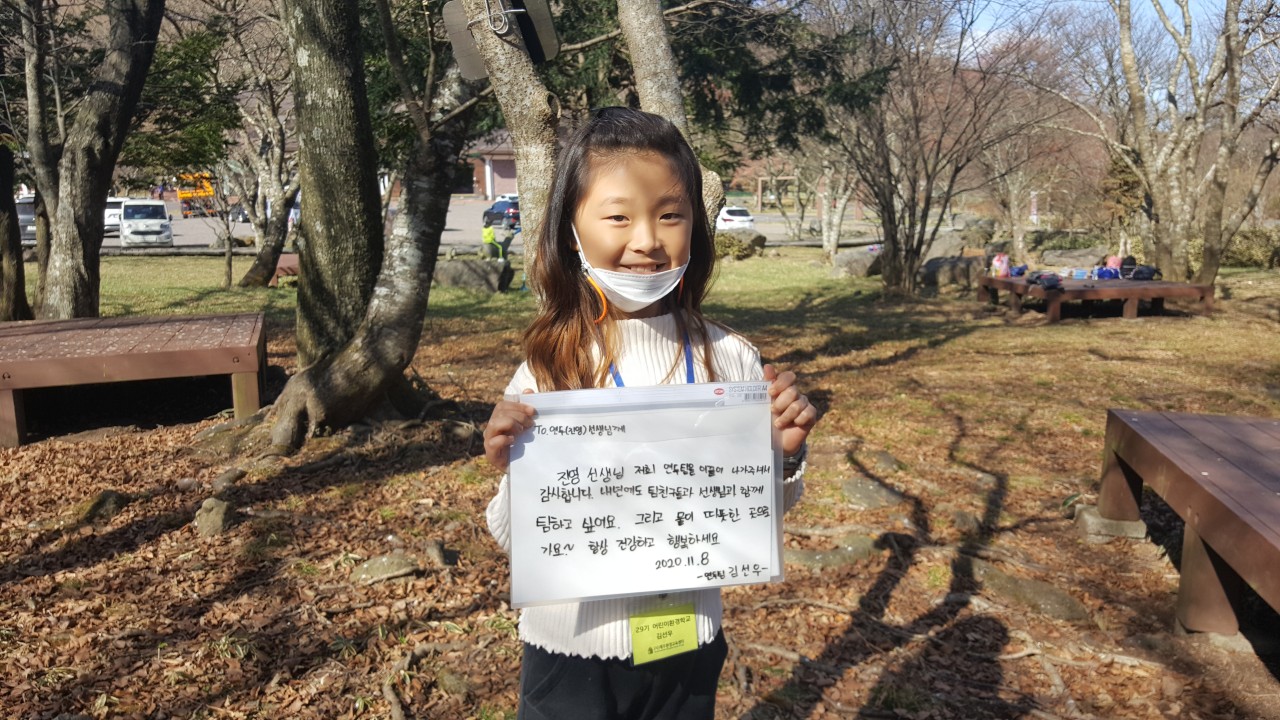 To. 연두(진영) 선생님께
진영 선생님 저희 연두팀을 이끌어 나가주셔서
감사합니다. 내년에도 팀친구들과 선생님과 함께
팀하고 싶어요. 그리고 몸이 따뜻한 곳으로
가요.~ 항상 건강하고 행복하세요
2020.11.8
-연두팀 김선우-
29기 어린이환경학교
김선우